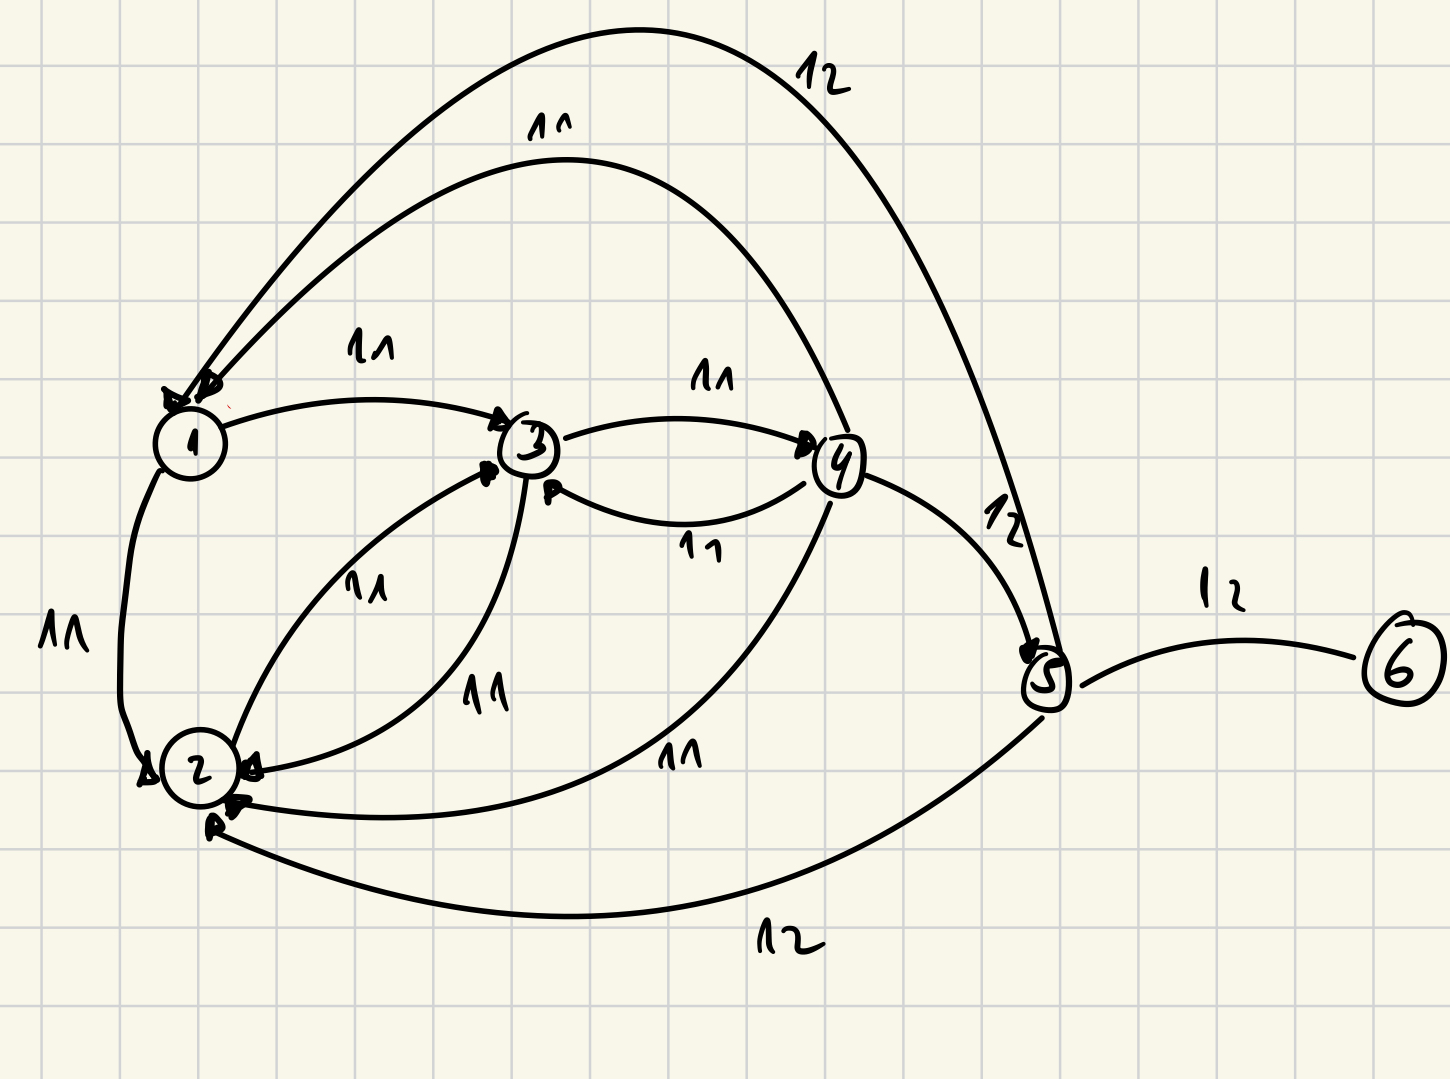 12
11
11
11
1
3
4
11
12
11
12
11
6
5
11
11
2
12